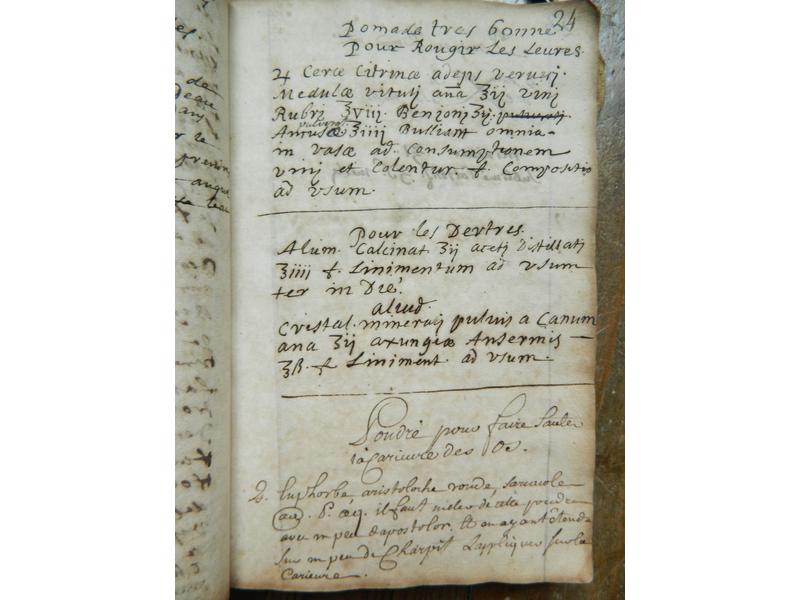 24
Pomade tres bonne
Pour Rougir Les Leures
♃ Ceræ Citrinæ adeps verueij.
Medulæ vituly ana ʒij vinj
Rubrj ℥viij. Benzonj ʒij. puluerati
puluerat
Ancusæ ℥iiij Bulliant omnia
in vasæ ad Consumptionem
vinj et Colentur. f. Compositio
ad vsum.
Pour les Dertres.
Alum. Calcinat ʒij acetj distillatj
℥iiij f. Linimentum ad vsum
ter in Die.
aliud.
Cristal. mineralj puluis a Canum
ana ʒij axungiæ Anseris
℥ß. f. Liniment. ad vsum.
Poudre pour faire Sauter
la Carieure des Os.
♃. Euphorbe, aristoloche ronde,
P. æq. il faut meler de cette poudre
avec un peu d'apostolor. Et en ayant étendu
sur un peu de Charpit L'appliquer sur la
Carieure.
de